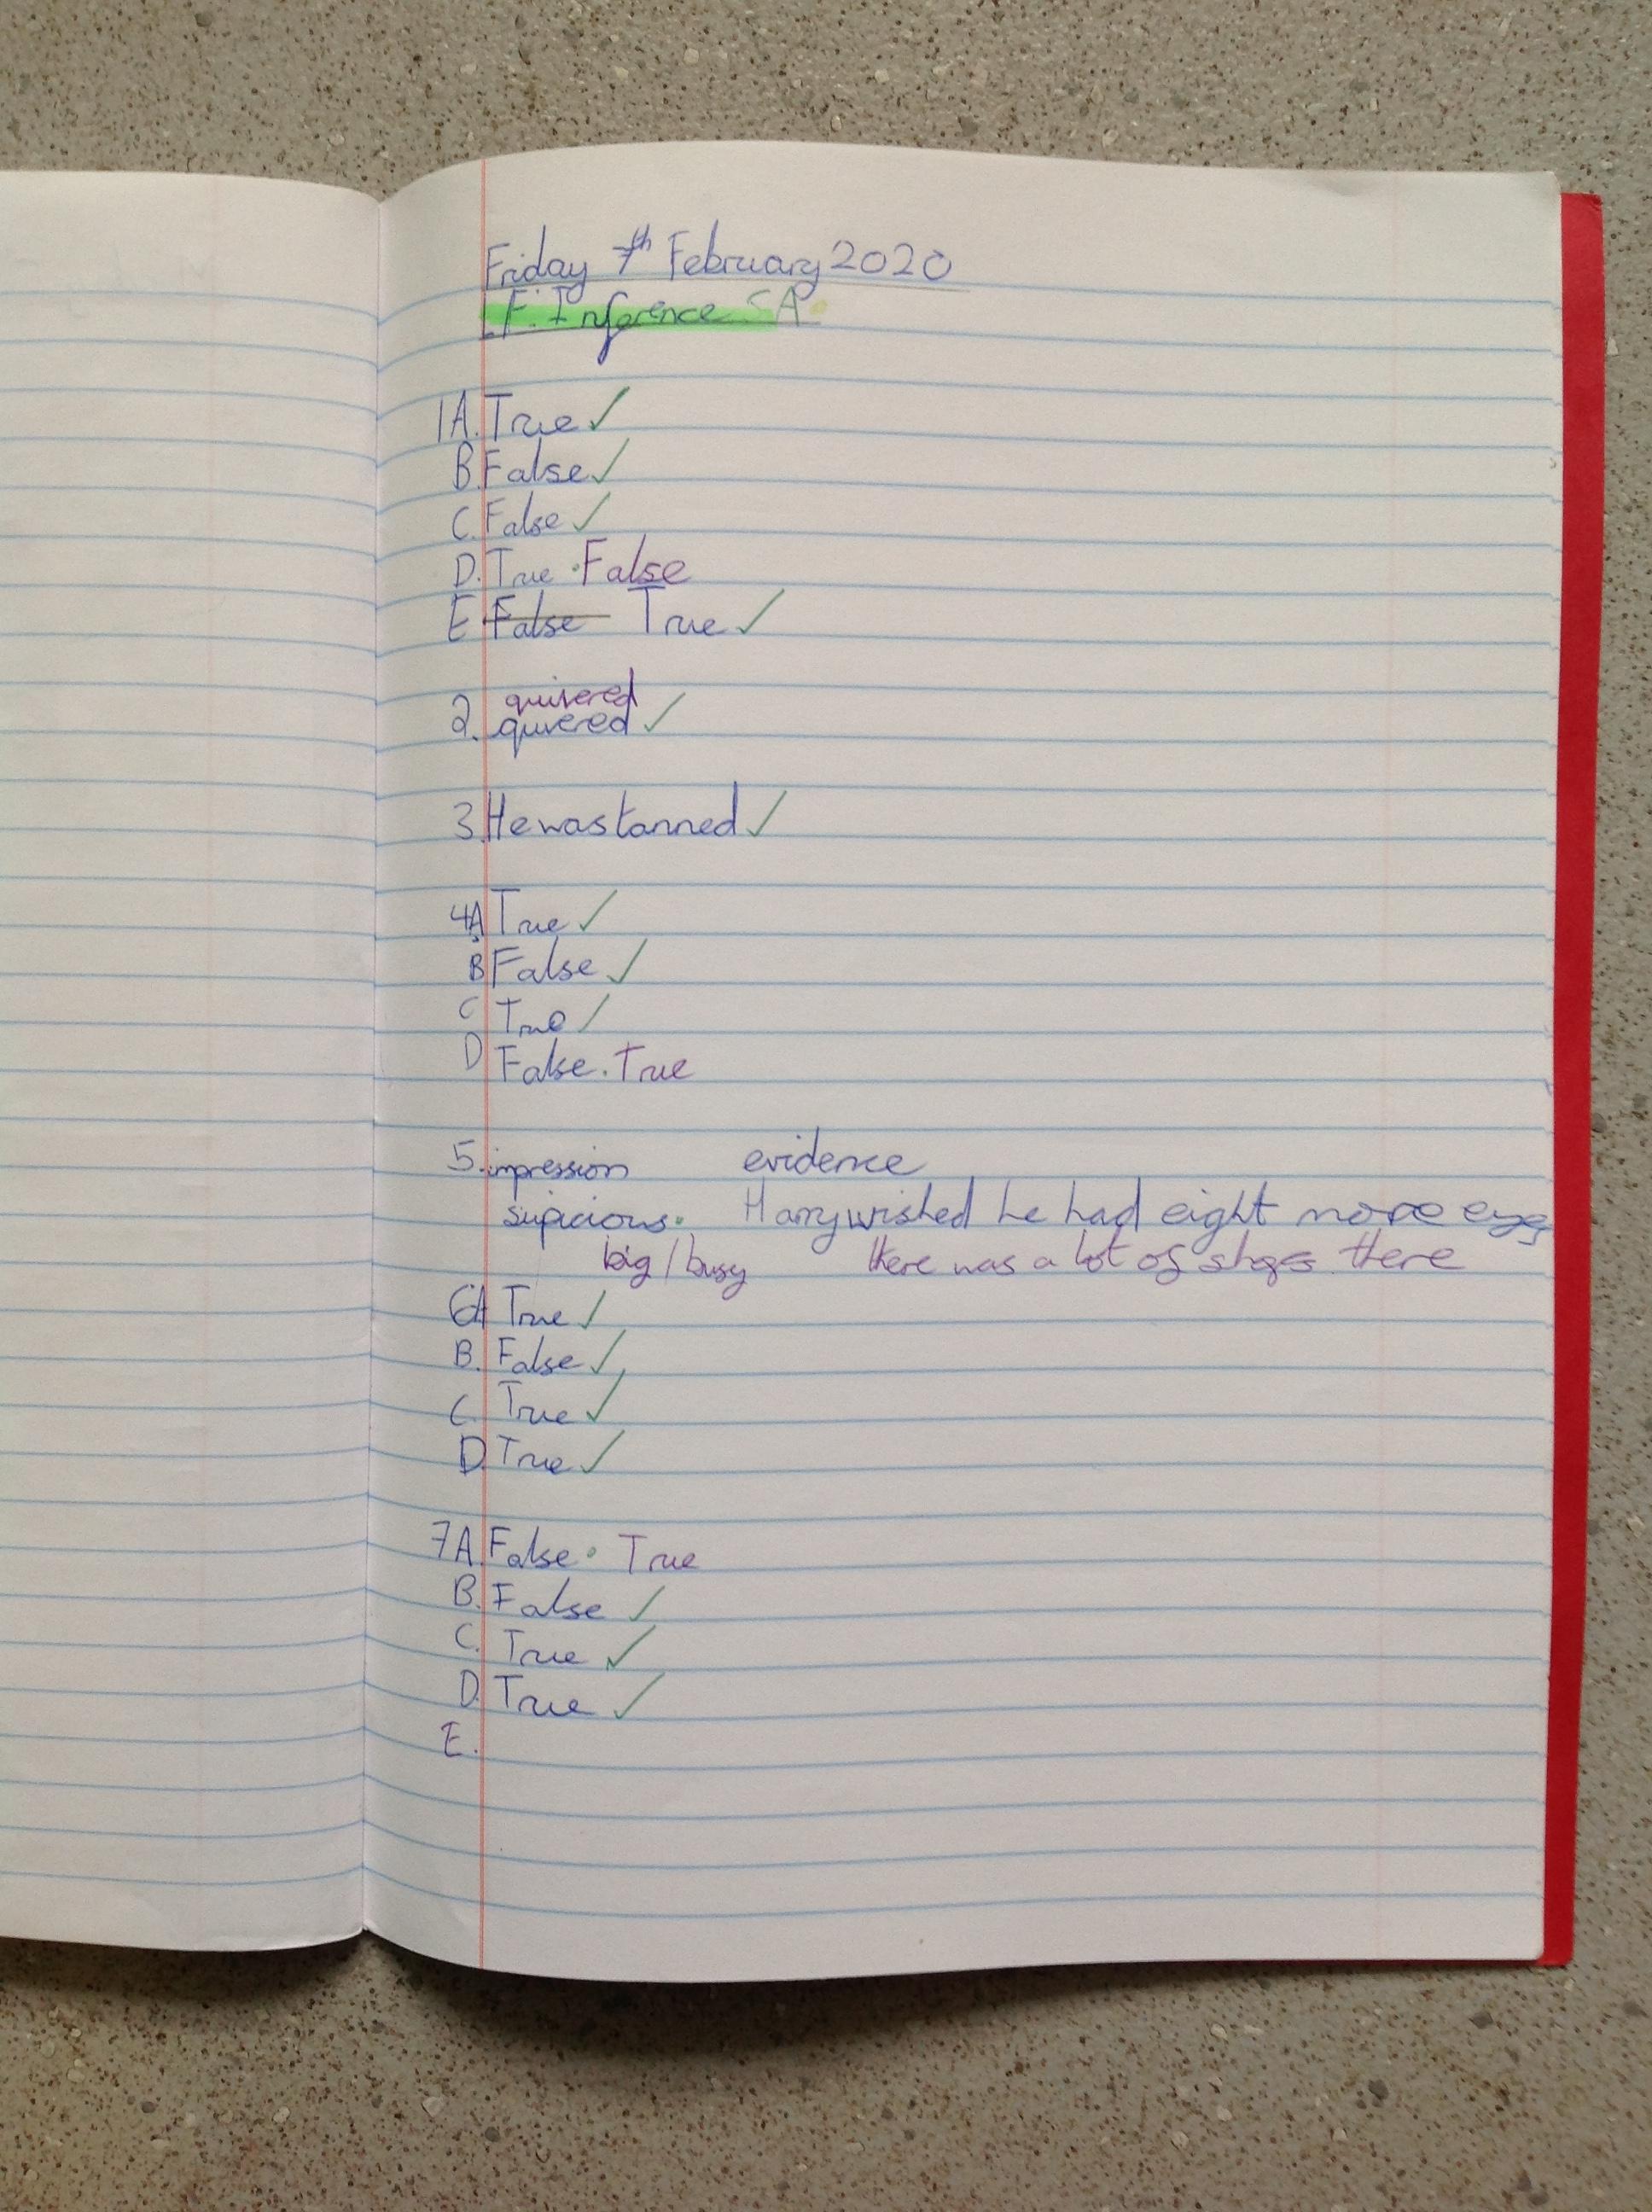 Friday 7th February 2020
F. Inference SA
1A. True ✓
B. False ✓
C. False ✓
D. True · False
E False True ✓
quivered
2. quvered ✓
3. He was tanned ✓
4A True ✓
B False ✓
C True ✓
D False . True
5. impression evidence
supicious. Harry wished he had eight more eyes
big / busy there was a lot of shops there
6A True ✓
B. False ✓
C. True ✓
D. True ✓
7A. False · True
B. False ✓
C. True ✓
D. True ✓
E.